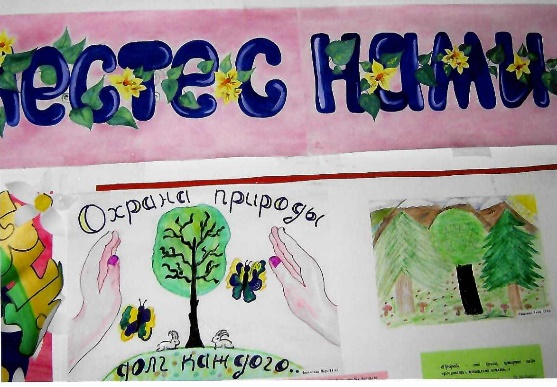 месте с нами
Охрана природы
долг каждого..